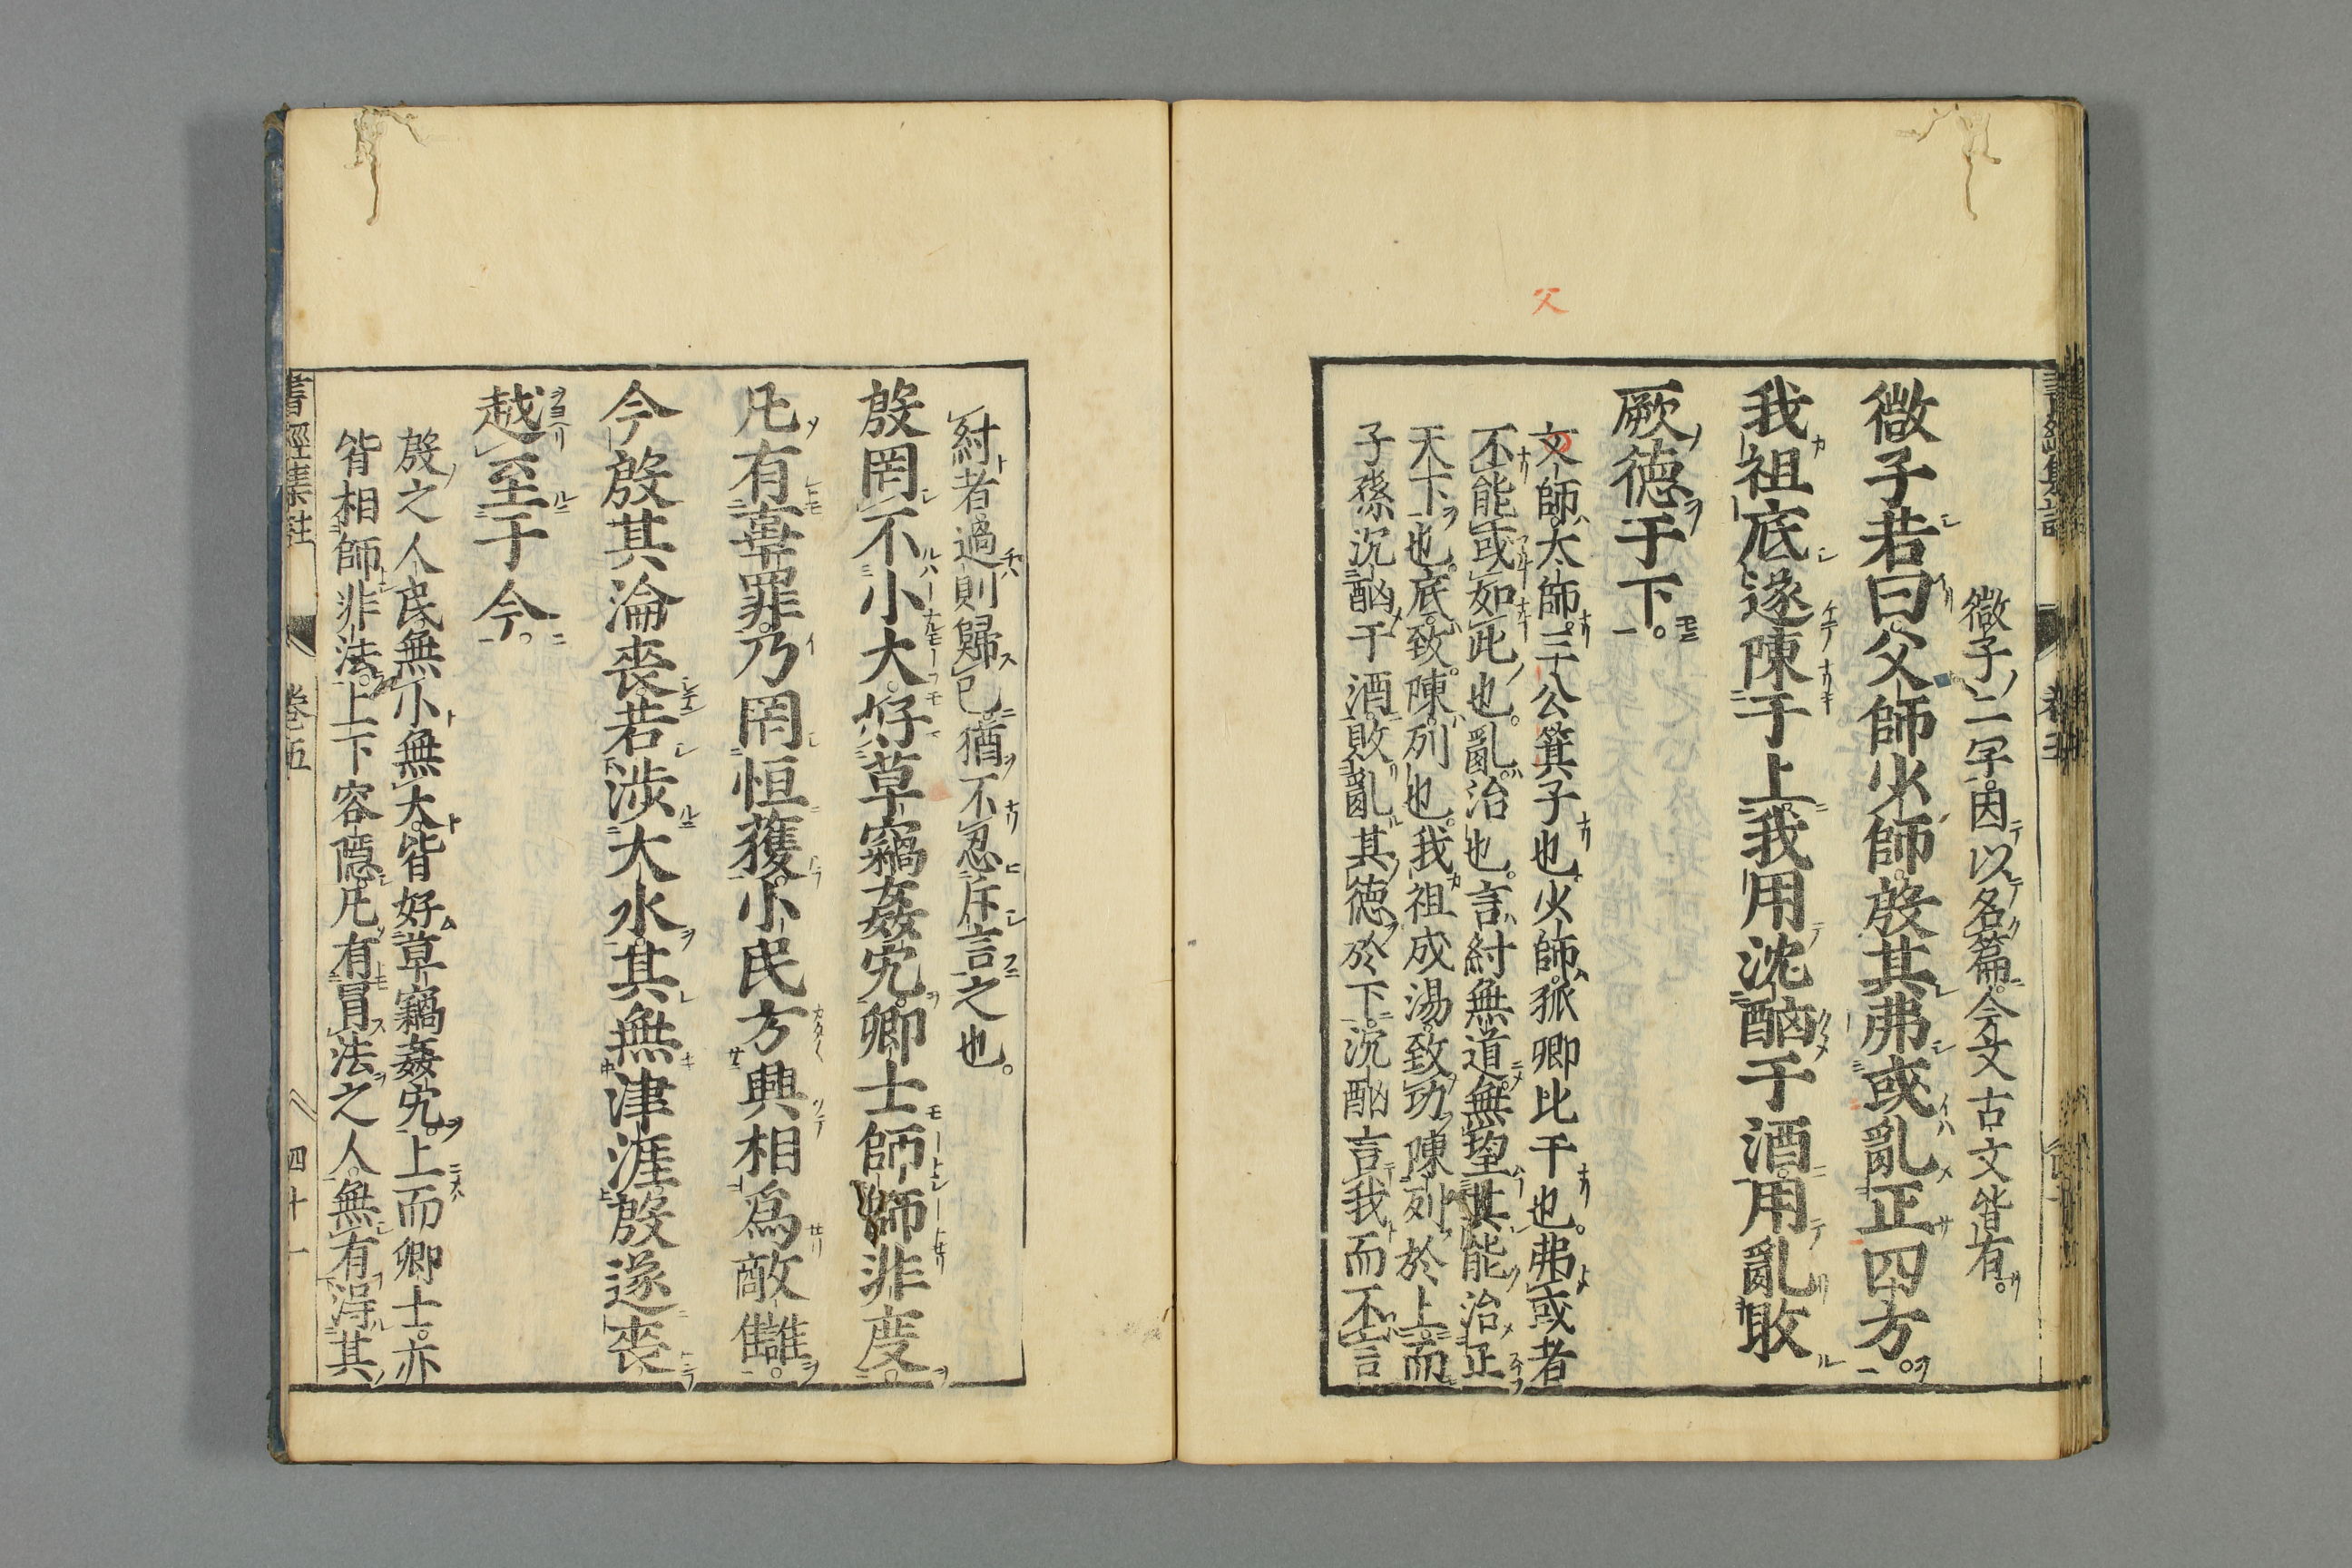 父
微子二字因以名篇今文古文皆有。
微子若曰父師少師殷其弗或亂正四方。
我祖底遂陳于上我用沈酗于酒用亂敗
厥德于下。
文師太師三公箕子也少師孤卿比干也。弗或者
不能或如此也。亂治也。言紂無道無望其能治正
天下也底致陳列也我祖成湯致功陳列於上而
子孫沉酗于酒敗亂其德於下沉酗言我而不言
紂者過則歸己猶不忍斥言之也。
殷罔不小大好草竊姦宄卿士師師非度。
凡有辜罪乃罔恒獲小民方興相爲敵讎。
今殷其淪喪若涉大水其無津涯殷遂喪
越至于今。
殷之人民無小無大皆好草竊姦宄上而卿士亦
皆相師非法上下容隱凡有冒法之人無有得其
書經集註 卷五 四十一